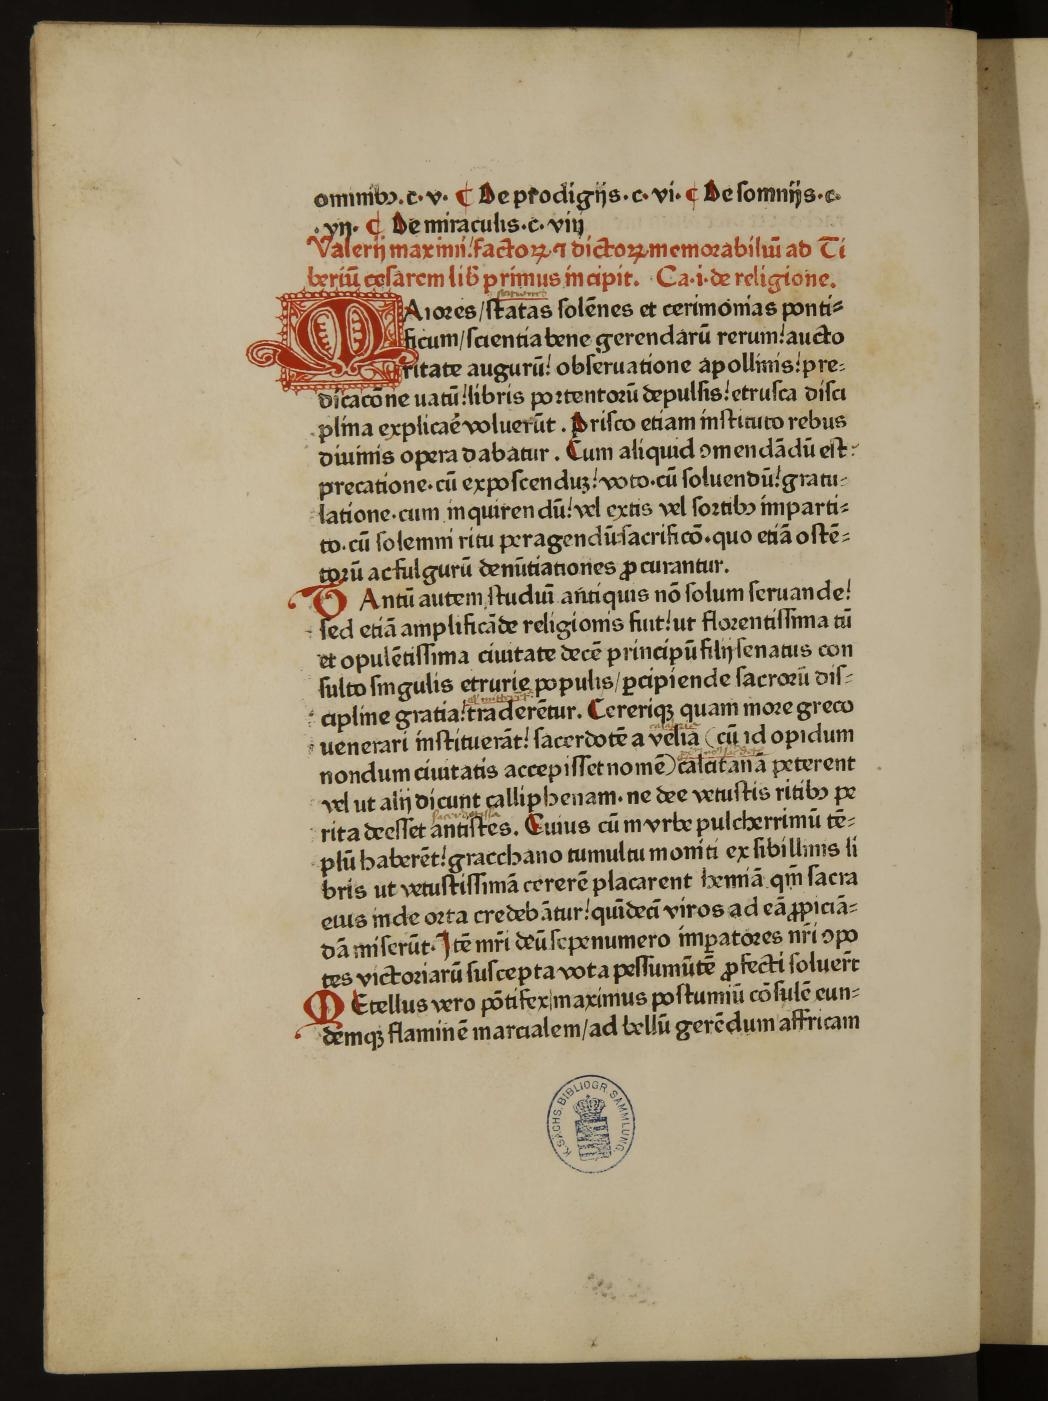 ominibꝫ.c.v. ¶ De prodigijs.c.vi. ¶ De somnijs.c.
.vij. ¶ De miraculis.c.viij
Valerij maximi: factoꝝ ⁊ dictoꝝ memorabiliū ad Ti
beriū cesarem lib̄ primus incipit. Ca.i.de religione.
MAiores/statas solēnes et cerimonias ponti⸗
ficum/scientia bene gerendarū rerum: aucto
ritate augurū: obseruatione apollinis: pre⸗
dicacōne uatū: libris portentorū depulsis: etrusca disci
plina explicaē voluerūt. Prisco etiam instituto rebus
diuinis opera dabatur. Cum aliquid ꝯmendādū est:
precatione. cū exposcenduꝫ: voto. cū soluendū: gratu⸗
latione. cum inquirendū: vel extis vel sortibꝫ imparti⸗
to. cū solemni ritu peragendū: sacrificō. quo etiā ostē⸗
torū ac fulgurū denūtiationes ꝓcurantur.
TAntū autem studiū antiquis nō solum seruande:
sed etiā amplificāde religionis fuit: ut florentissima tū
et opulētissima ciuitate decē principū filij senatus con
sulto singulis etrurie populis/ꝑcipiende sacrorū dis⸗
cipline gratia: traderētur. Cereriqꝫ quam more greco
uenerari instituerāt: sacerdotē a velia (cū id opidum
nondum ciuitatis accepisset nomē) calcitanā peterent
vel ut alij dicunt calliphenam. ne dee vetustis ritibꝫ pe
rita deesset antistes. Cuius cū in vrbe pulcherrimū tē⸗
plū haberēt: gracchano tumultu moniti ex sibillinis li
bris ut vetustissimā cererē placarent hennā qm̄ sacra
eius inde orta credebātur: quīdecī viros ad eā ꝓpiciā⸗
dā miserūt. Itē mr̄i deū sepenumero imꝑatores nr̄i ꝯpo
tes victoriarū suscepta vota pessumūtē ꝓfecti soluer̄t
MEtellus vero pōtifex maximus postumiū cōsulē eun⸗
demqꝫ flaminē marcialem/ad bellū gerēdum affricam
K. SÄCHS. BIBLIOGR. SAMMLUNG.